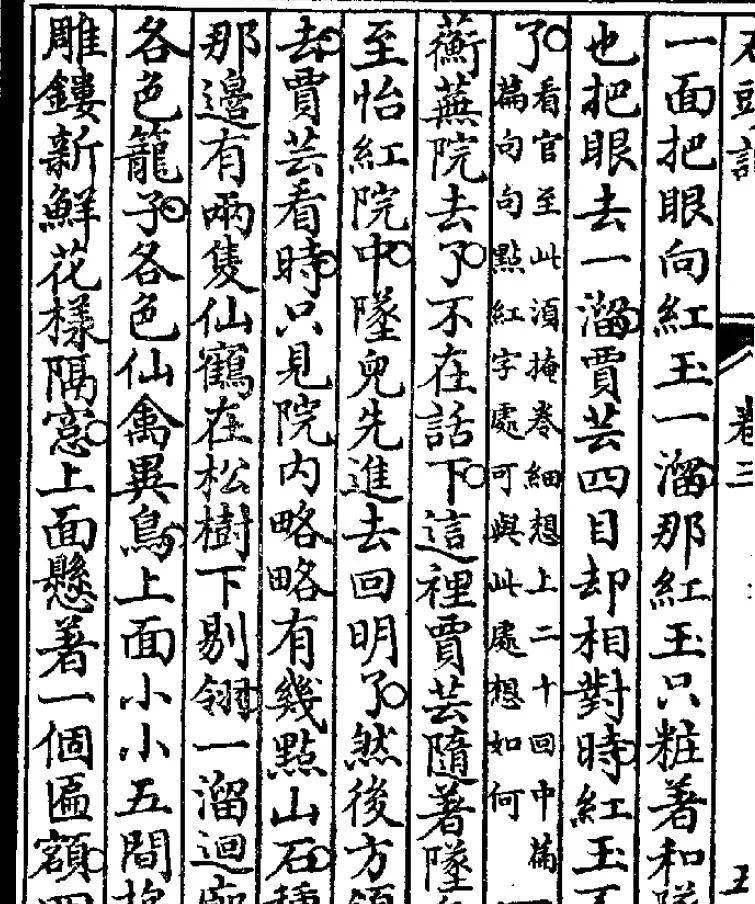 石頭記 卷二 五
一面把眼向紅玉一溜那紅玉只粧着和墜
也把眼去一溜賈芸四目却相對時紅玉不
了看官至此湏掩卷細想上二十回中篇
篇句句點紅字處可與此處想如何
蘅蕪院去了不在話下這裡賈芸隨着墜
至怡紅院中墜兒先進去回明了然後方領
去賈芸看時只見院内略略有幾點山石種
那邊有兩隻仙鶴在松樹下剔翎一溜迴廊
各色籠子各色仙禽異鳥上面小小五間抱
雕鏤新鮮花樣隔窓上面懸着一個匾額四